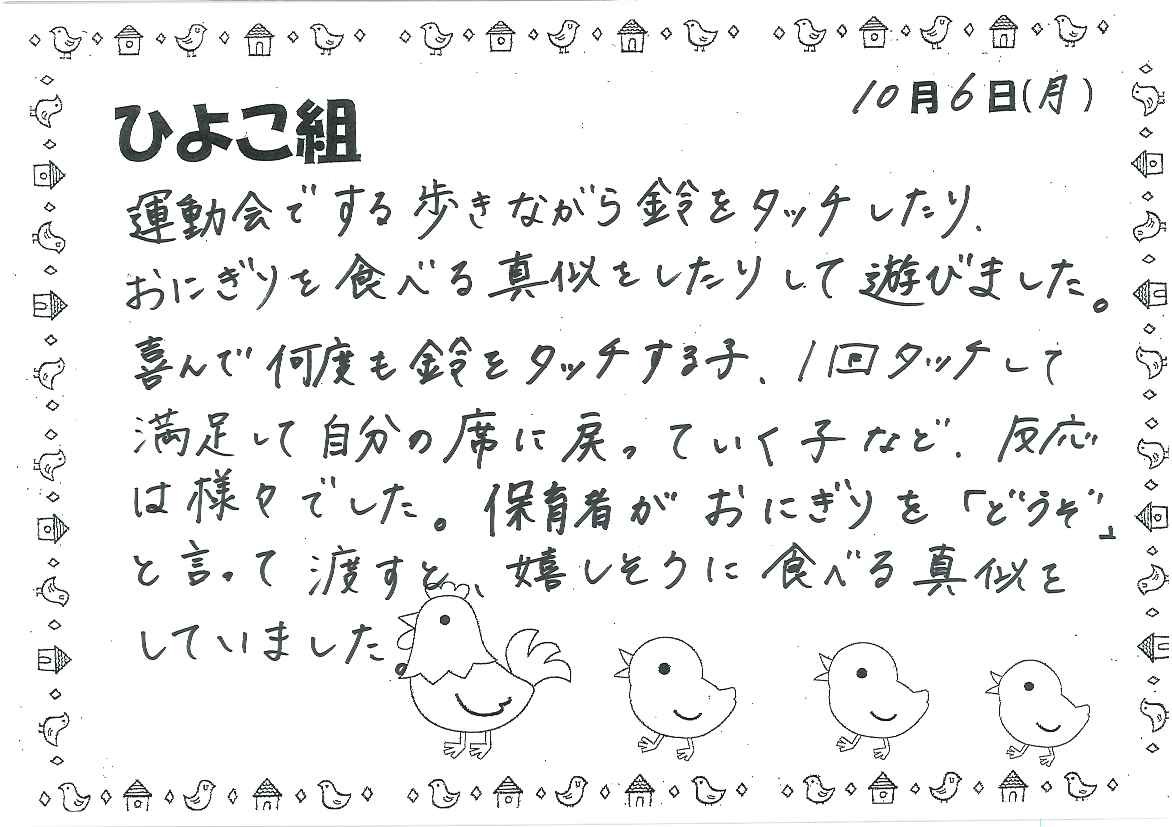 10月6日(月)
ひよこ組
運動会でする歩きながら鈴をタッチしたり、
おにぎりを食べる真似をしたりして遊びました。
喜んで何度も鈴をタッチする子、1回タッチして
満足して自分の席に戻っていく子など、反応
は様々でした。保育者がおにぎりを「どうぞ」
と言って渡すと、嬉しそうに食べる真似を
していました。